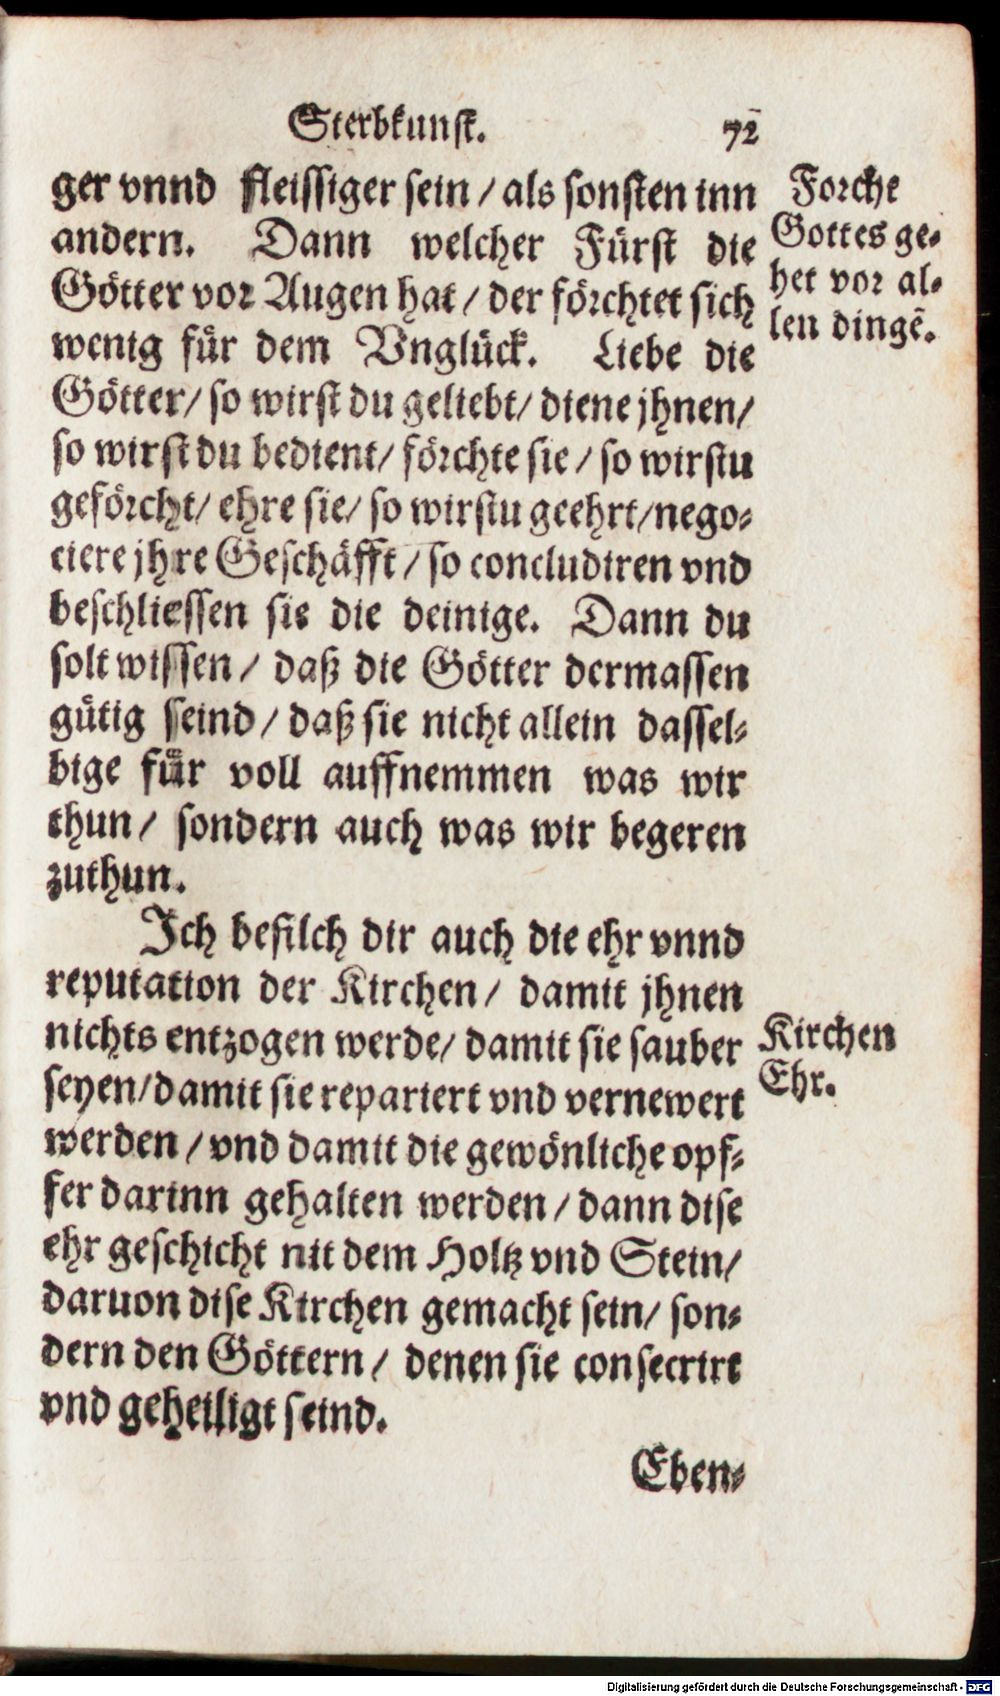 Sterbkunst. 72
ger vnnd fleissiger sein / als sonsten inn
andern. Dann welcher Fürst die
Götter vor Augen hat / der förchtet sich
wenig für dem Vnglück. Liebe die
Götter / so wirst du geliebt / diene jhnen /
so wirst du bedient / förchte sie / so wirstu
geförcht / ehre sie / so wirstu geehrt / nego-
ciere jhre Geschäfft / so concludiren vnd
beschliessen sie die deinige. Dann du
solt wissen / daß die Götter dermassen
gütig seind / daß sie nicht allein dassel-
bige für voll auffnemmen was wir
thun / sondern auch was wir begeren
zuthun.
Ich befilch dir auch die ehr vnnd
reputation der Kirchen / damit jhnen
nichts entzogen werde / damit sie sauber
seyen / damit sie repariert vnd vernewert
werden / vnd damit die gewönliche opf-
fer darinn gehalten werden / dann dise
ehr geschicht nit dem Holtz vnd Stein /
daruon dise Kirchen gemacht sein / son-
dern den Göttern / denen sie consecrirt
vnd geheiligt seind.
Eben-
Forcht
Gottes ge-
het vor al-
len dingē.
Kirchen
Ehr.
Digitalisierung gefördert durch die Deutsche Forschungsgemeinschaft - DFG